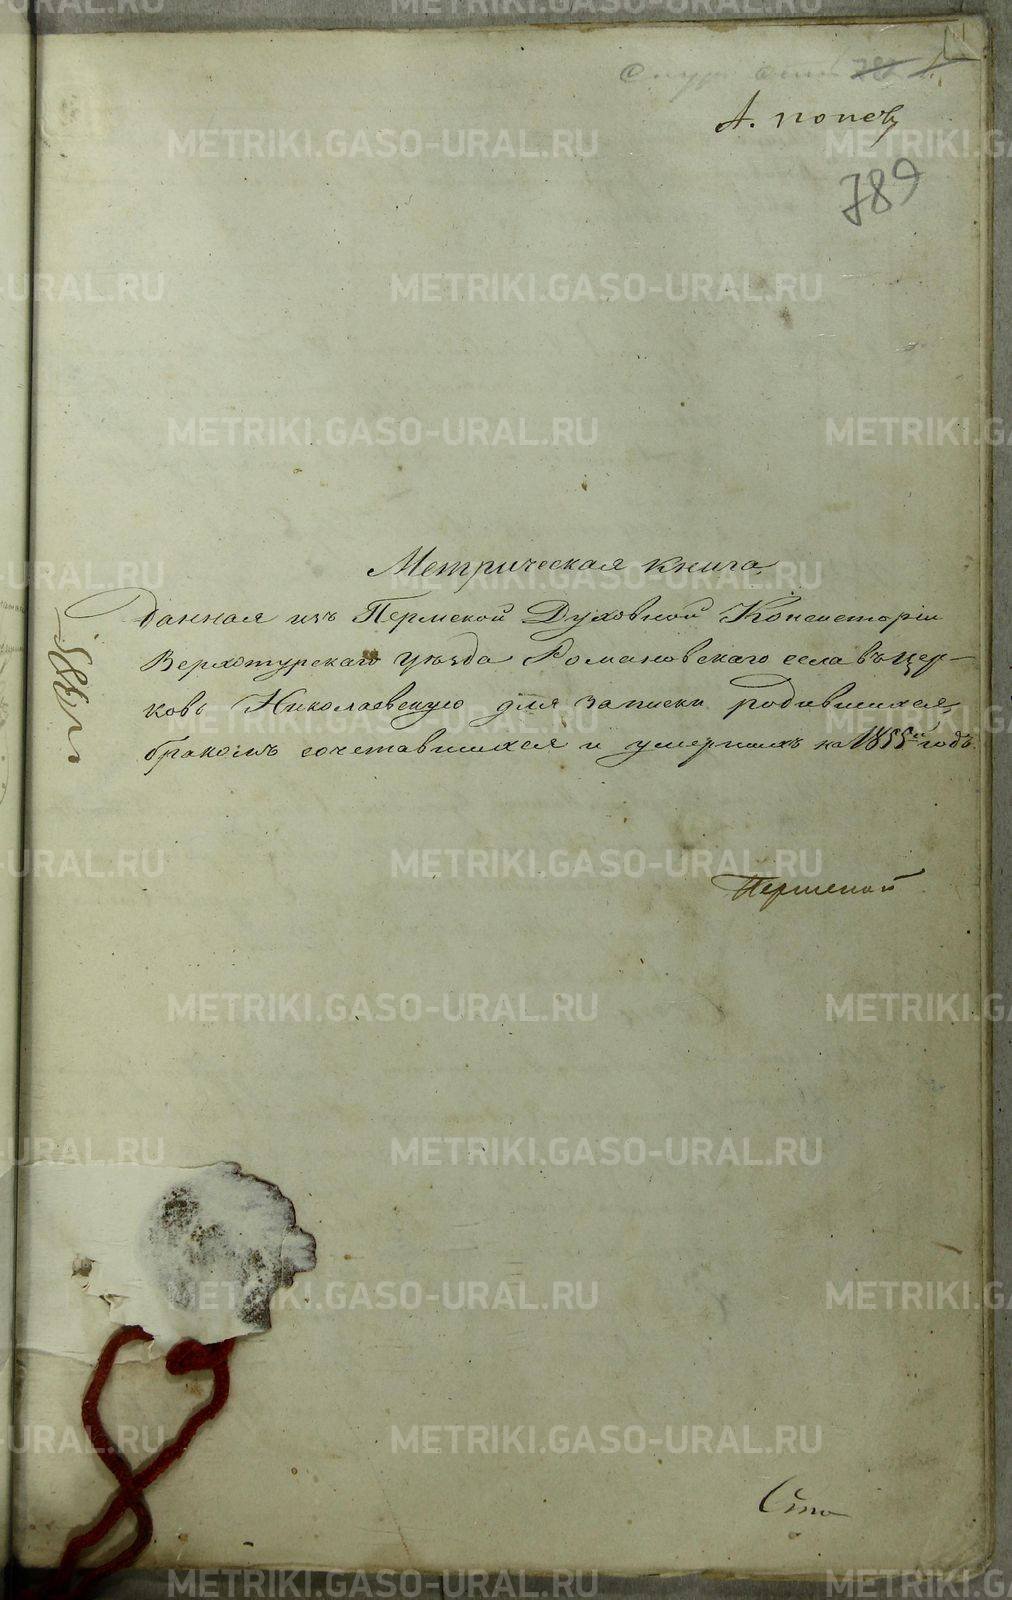 А. попов
789
Метрическая книга,
данная изъ Пермской Духовной Консисторіи
Верхотурскаго уѣзда Романовскаго села въ цер-
ковь Николаевскую для записки родившихся,
бракомъ сочетавшихся и умершихъ на 1855й годъ.
Пермской
Сто
METRIKI.GASO-URAL.RU